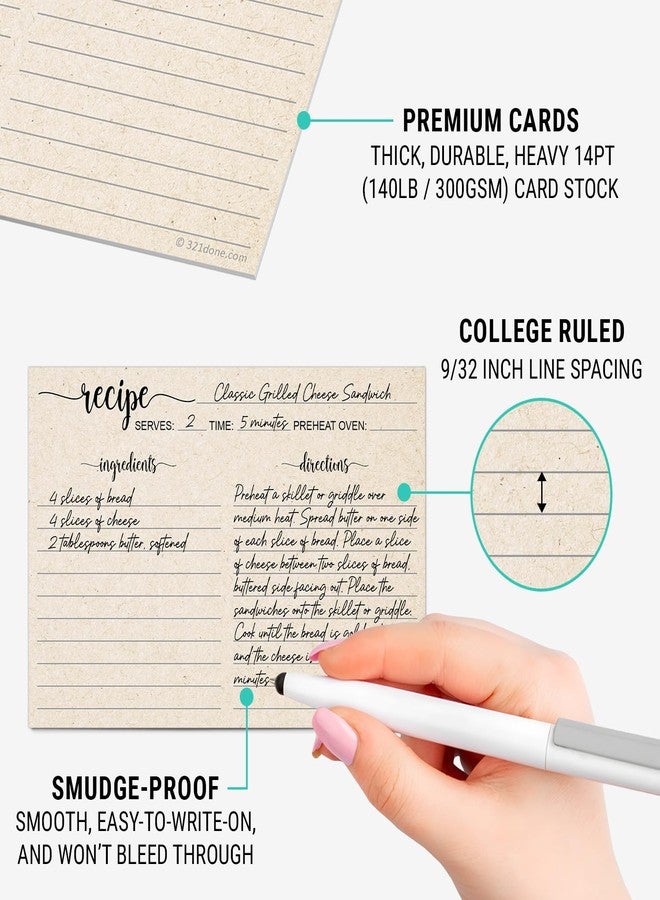 PREMIUM CARDS
THICK, DURABLE, HEAVY 14PT
(140LB / 300GSM) CARD STOCK
© 321done.com
COLLEGE RULED
9/32 INCH LINE SPACING
recipe
Classic Grilled Cheese Sandwich
SERVES: 2 TIME: 5 minutes PREHEAT OVEN:
ingredients
4 slices of bread
4 slices of cheese
2 tablespoons butter, softened
directions
Preheat a skillet or griddle over
medium heat. Spread butter on one side
of each slice of bread. Place a slice
of cheese between two slices of bread,
buttered side facing out. Place the
sandwiches onto the skillet or griddle.
Cook until the bread is
and the cheese
minutes
SMUDGE-PROOF
SMOOTH, EASY-TO-WRITE-ON,
AND WON'T BLEED THROUGH